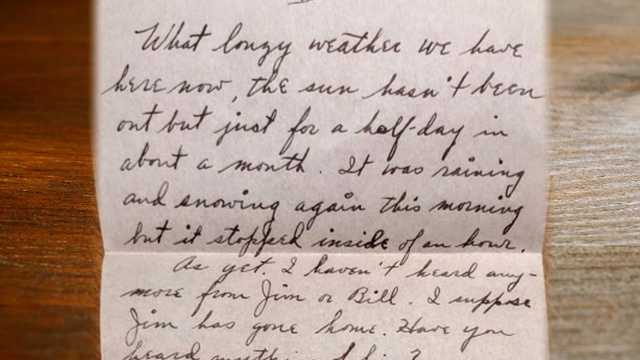 What lousy weather we have
here now, the sun hasn't been
out but just for a half-day in
about a month. It was raining
and snowing again this morning
but it stopped inside of an hour.
As yet. I haven't heard any-
more from Jim or Bill. I suppose
Jim has gone home. Have you
heard